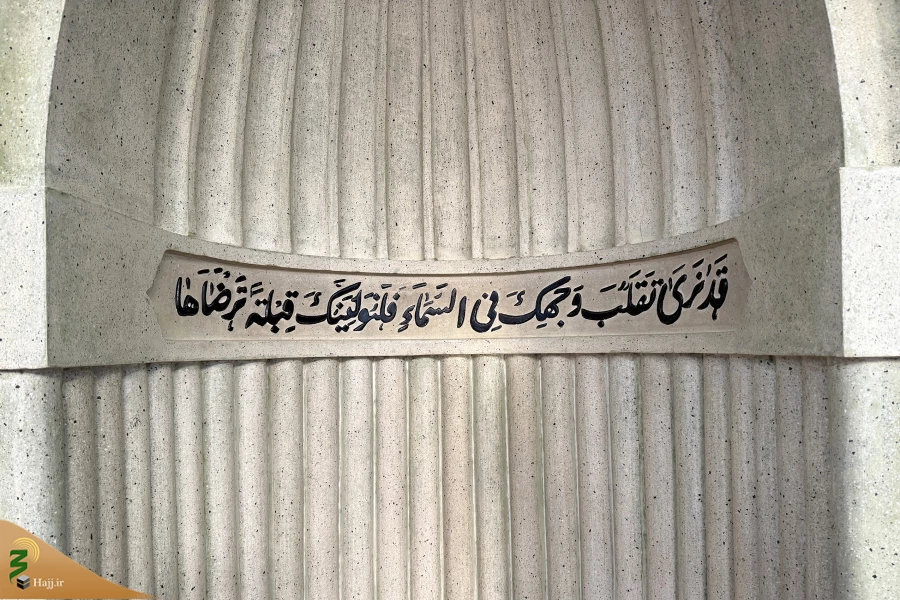 قَدْ نَرىٰ تَقَلُّبَ وَجْهِكَ فِی السَّمَاءِ فَلَنُوَلِّيَنَّكَ قِبْلَةً تَرْضَاهَا
Hajj.ir